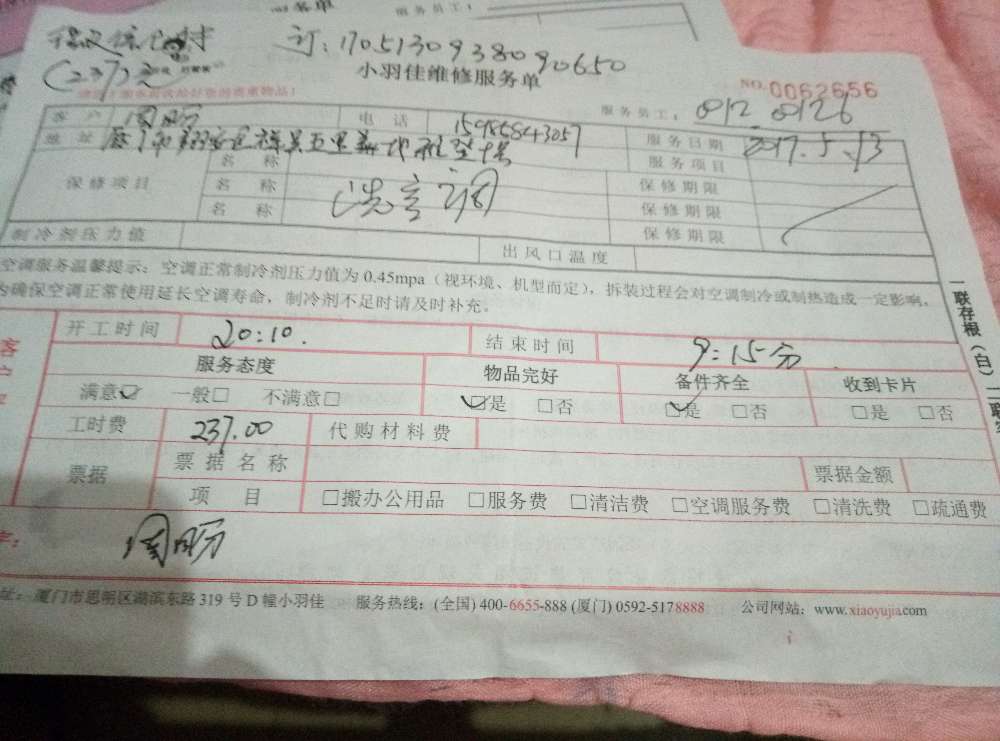 服务员工：
订：170513093809065​0
(237)元
小羽佳维修服务单
NO.0062656
服务员工： 0912 09126
客户 周明 电话 15985843057 服务日期 2017.5.13
地址 厦门市翔安区祥吴五里 服务项目
保修项目 名称 洗空调 保修期限
名称 保修期限
名称 保修期限
制冷剂压力值 出风口温度
空调服务温馨提示：空调正常制冷剂压力值为0.45mpa（视环境、机型而定），拆装过程会对空调制冷或制热造成一定影响，
为确保空调正常使用延长空调寿命，制冷剂不足时请及时补充。
一联存根（白）二联客
客户
开工时间 20:10. 结束时间 9:15分
服务态度 物品完好 备件齐全 收到卡片
满意☑ 一般□ 不满意□ ☑是 □否 ☑是 □否 □是 □否
工时费 237.00 代购材料费
票据 票据名称 票据金额
项目 □搬办公用品 □服务费 □清洁费 □空调服务费 □清洗费 □疏通费
字： 周明
址：厦门市思明区湖滨东路319号D幢小羽佳 服务热线：(全国) 400-6655-888 (厦门) 0592-5178888 公司网站：www.xiaoyujia.com